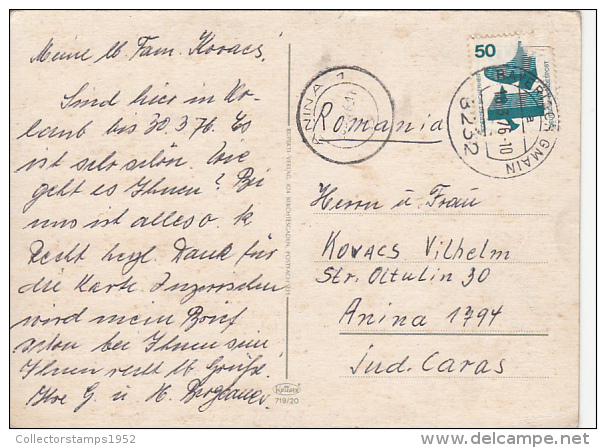 Meine lb Fam. Kovacs!
Sind hier in Ur-
laub bis 30.3.76. Es
ist sehr schön. Wie
geht es Ihnen? Bei
uns ist alles o. k
Recht hrzl. Dank für
die Karte. Inzwischen
wird mein Brief
schon bei Ihnen sein
Ihnen recht lb Grüße
Ihre G. u. H.
ANINA 1
Romania
50
8232
76-10
GMAIN
Herrn u Frau
KOVACS Vilhelm
Str. Oltulin 30
Anina 1794
Jud. Caras
719/20
Collectorstamps1952
delcampe.net